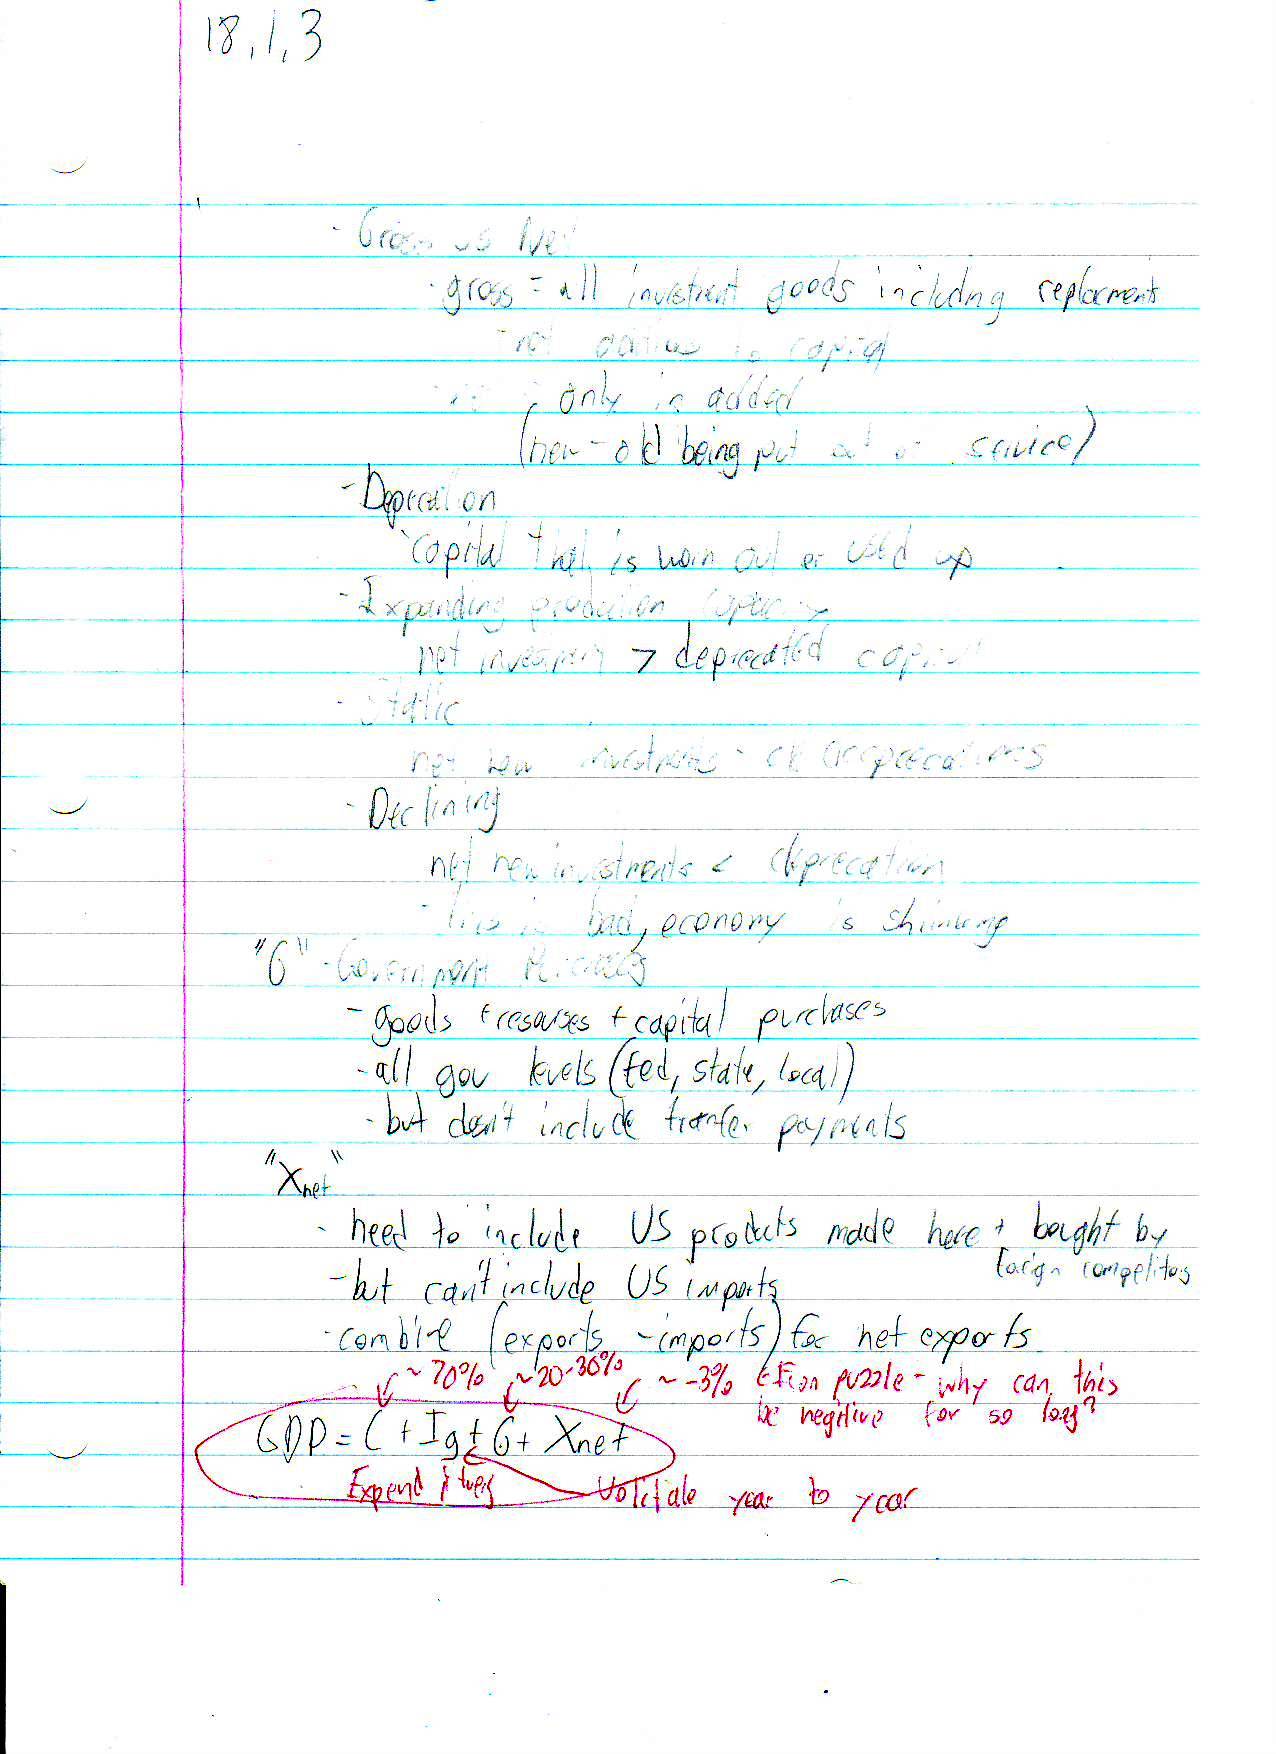 18,1,3
- Gross vs Net
- gross = all investment goods including replacments
- not to capital
only in added
(new - old being put out of service)
- Depreciation
- capital that is worn out or used up
- Expanding production capacity
net investment > deprecated capital
- Static
net new investments = deprecations
- Declining
net new investments < deprecation
- this is bad, economy is shrinking
"G" - Government Purchases
- goods + resourses + capital purchases
- all gov levels (fed, state, local)
- but doesn't include transfer payments
"Xnet"
- need to include US products made here + bought by
foreign competitors
- but can't include US imports
- combine (exports - imports) for net exports
~70% ~20-30% ~ -3% ← Econ puzzle - why can this
be negitive for so long?
GDP = C + Ig + G + Xnet
Expenditures Volitale year to year